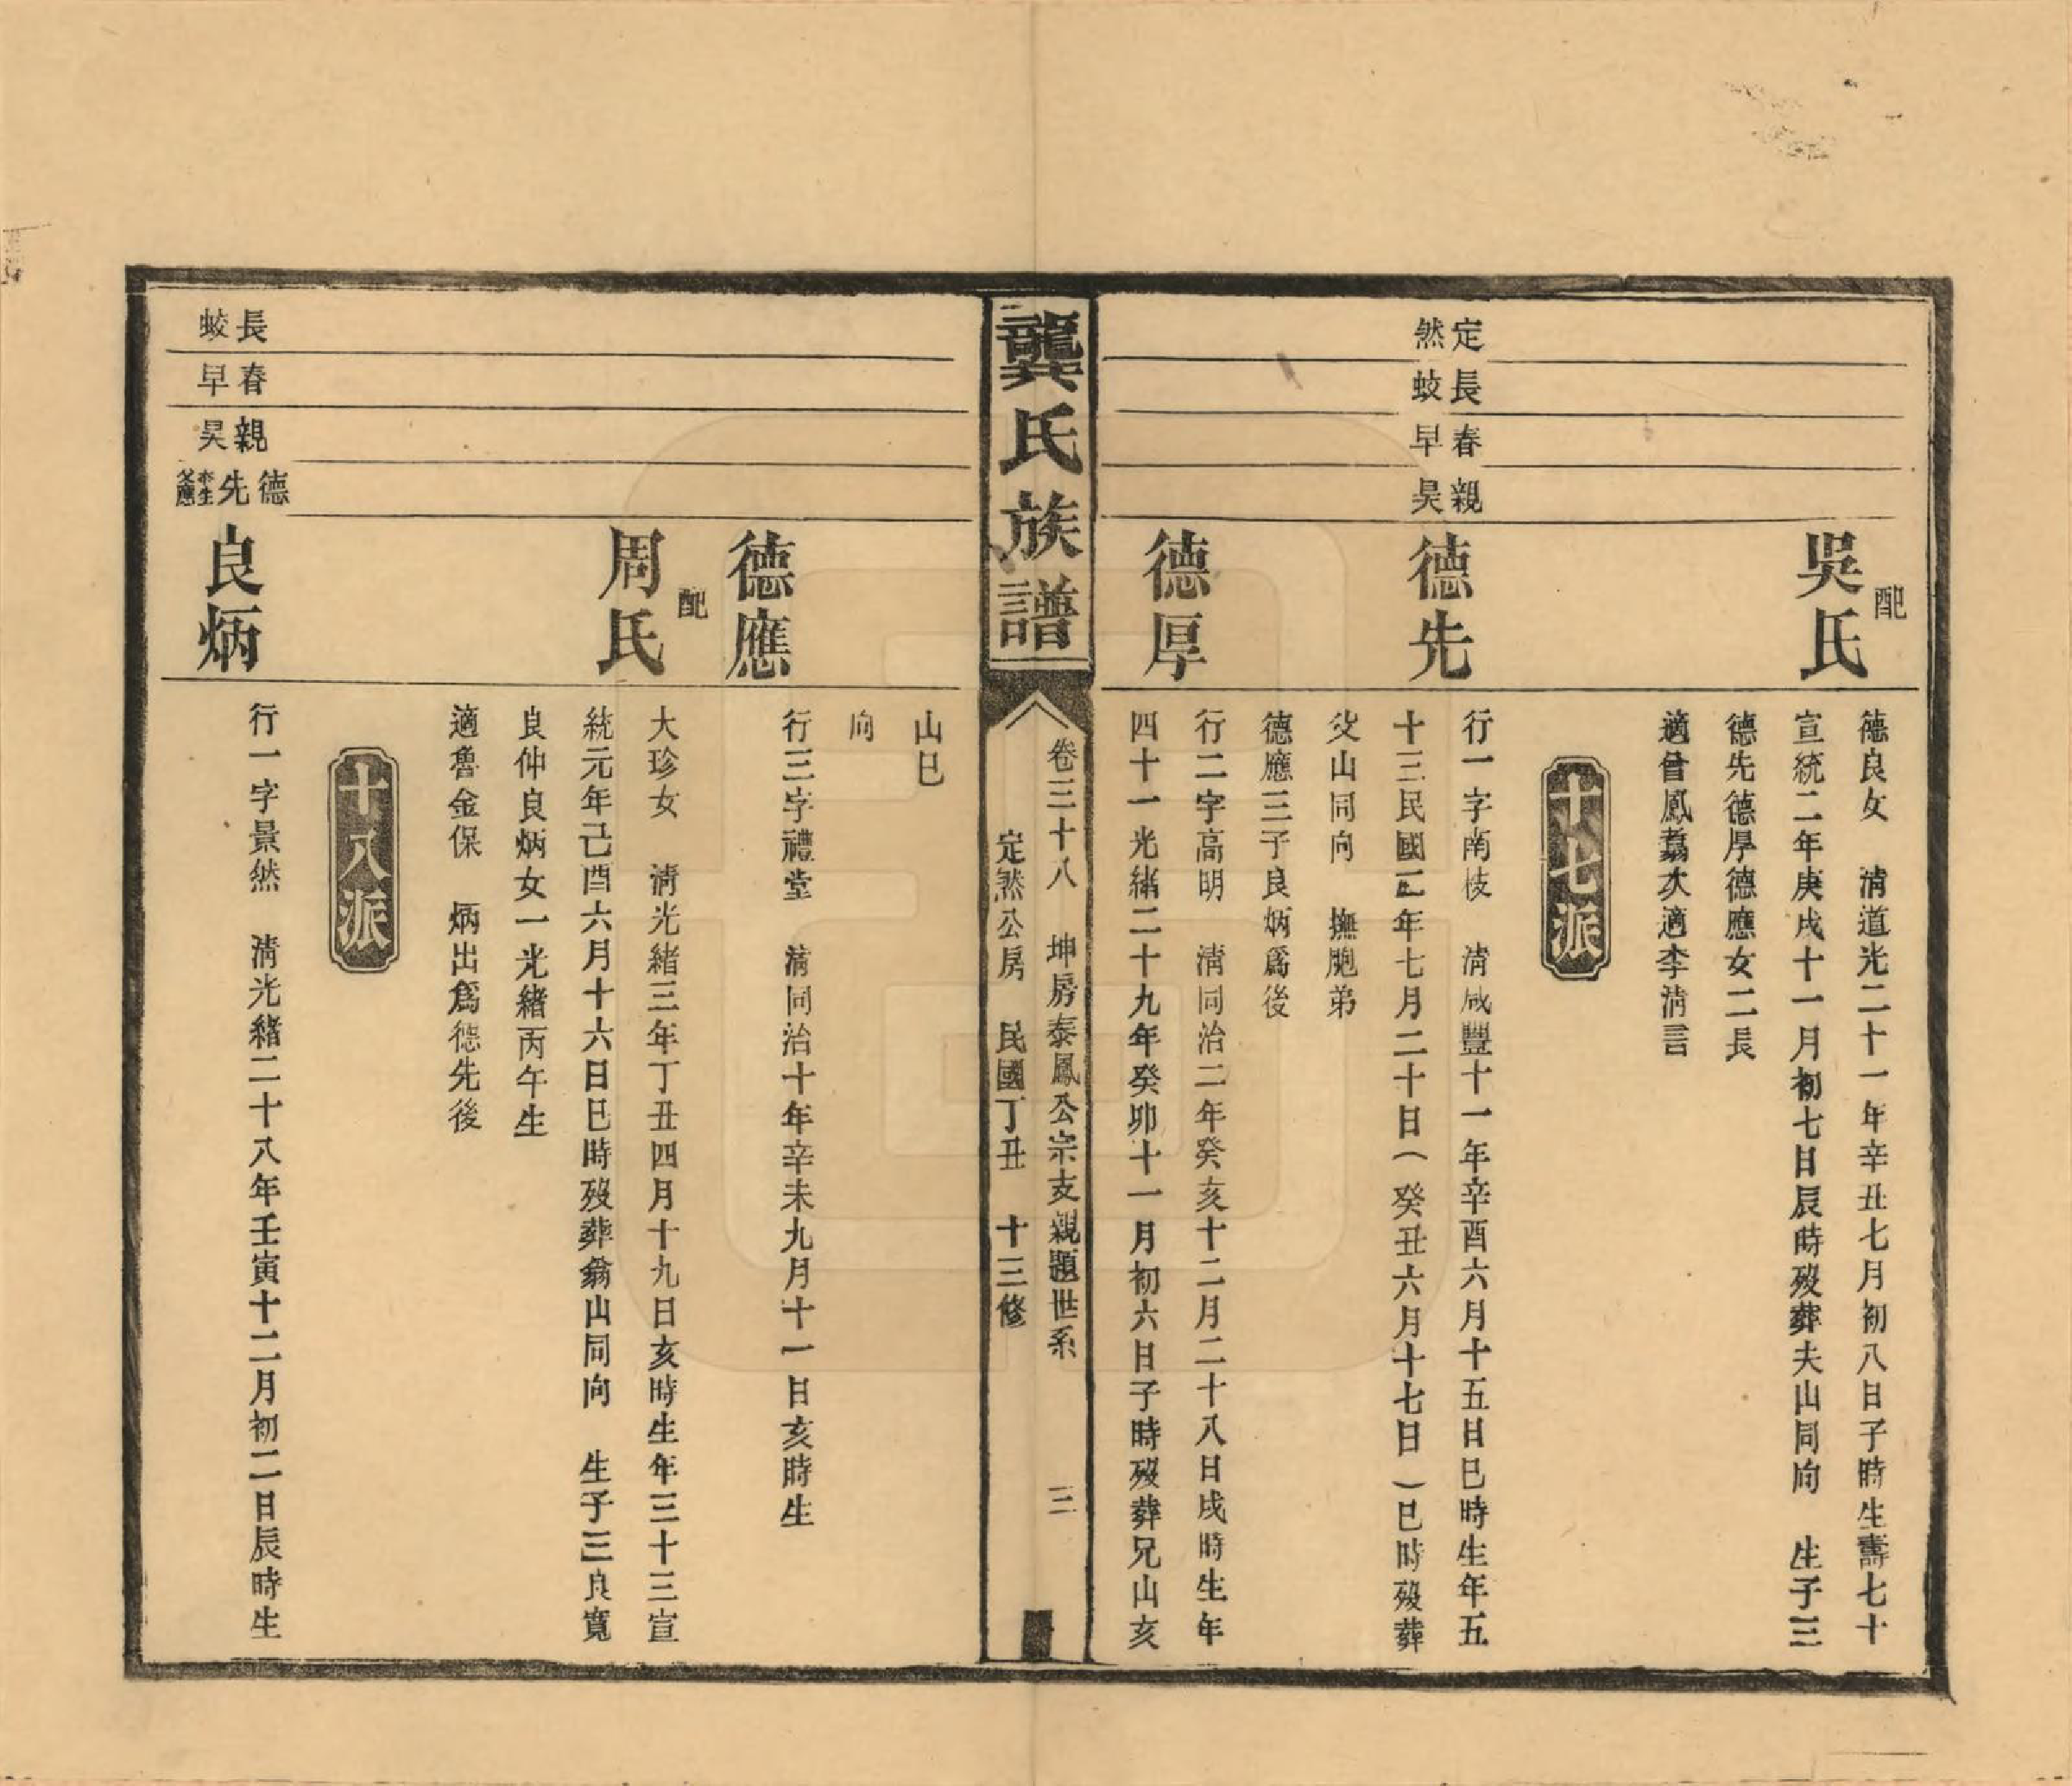 配
吳氏
德良女　淸道光二十一年辛丑七月初八日子時生壽七十
宣統二年庚戌十一月初七日辰時歿葬夫山同向　生子三
德先德厚德應女二長
適曾鳳翥次適李淸言
十七派
定然
長蛟
春早
親昊
德先
行一字南枝　淸咸豐十一年辛酉六月十五日巳時生年五
十三民國二年七月二十日(癸丑六月十七日)巳時歿葬
父山同向　撫胞弟
德應三子良炳爲後
德厚
行二字高明　淸同治二年癸亥十二月二十八日戌時生年
四十一光緒二十九年癸卯十一月初六日子時歿葬兄山亥
龔氏族譜
卷三十八　坤房泰鳳公宗支親題世系　三
定然公房　民國丁丑　十三修
山巳
向
德應
行三字禮堂　淸同治十年辛未九月十一日亥時生
配
周氏
大珍女　淸光緒三年丁丑四月十九日亥時生年三十三宣
統元年己酉六月十六日巳時歿葬翁山同向　生子三良寬
良仲良炳女一光緒丙午生
適魯金保　炳出爲德先後
十八派
長蛟
春早
親昊
德先
本生父應
良炳
行一字景然　淸光緒二十八年壬寅十二月初二日辰時生